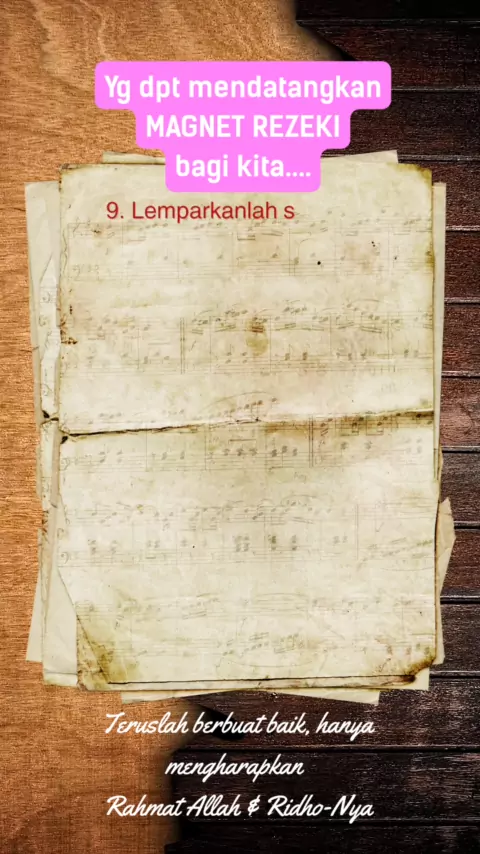 Yg dpt mendatangkan
MAGNET REZEKI
bagi kita....
9. Lemparkanlah s
Teruslah berbuat baik, hanya
mengharapkan
Rahmat Allah & Ridho-Nya